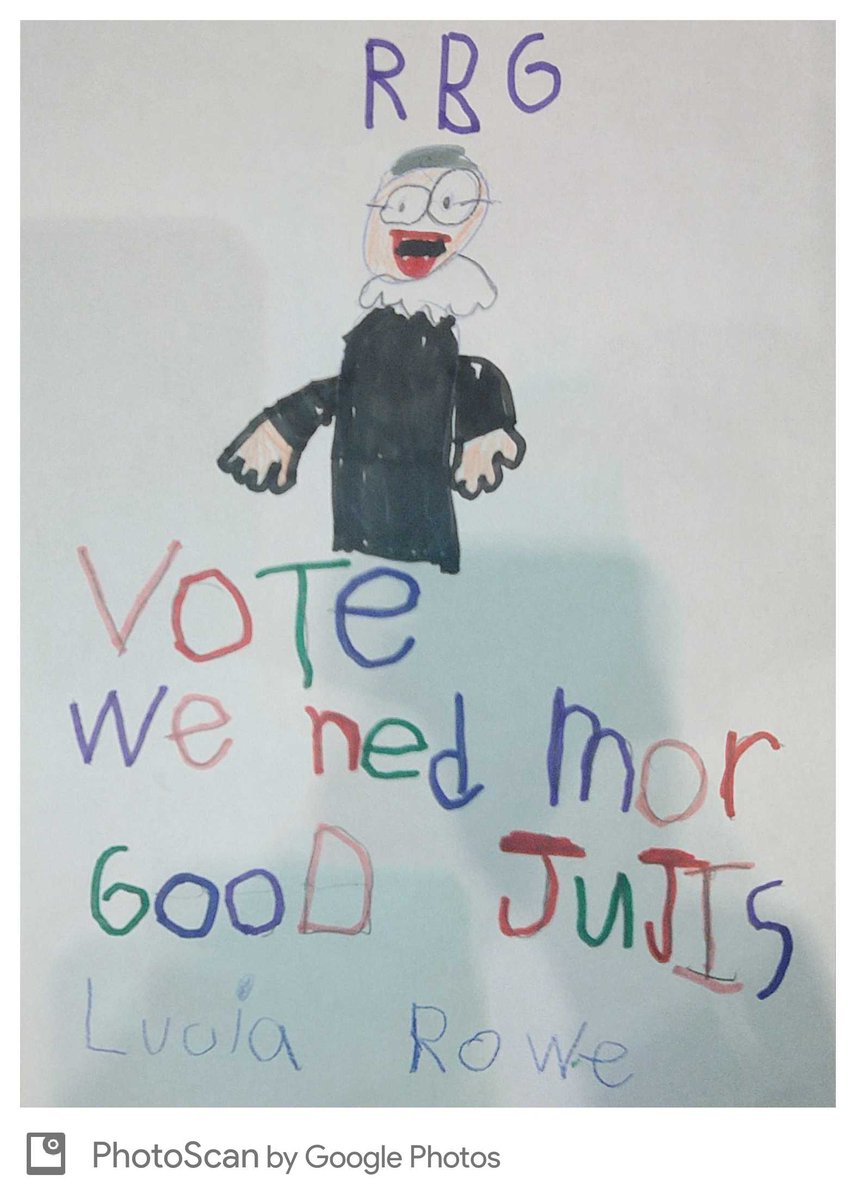 RBG
VOTe
we ned mor
GOOD JuJIS
Lucia Rowe
PhotoScan by Google Photos